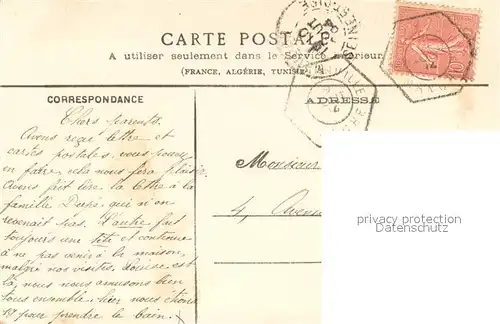 CARTE POSTALE
A utiliser seulement dans le Service Intérieur
(FRANCE, ALGÉRIE, TUNISIE)
CORRESPONDANCE
ADRESSE
Chers parents
Avons reçu lettre et
cartes postales, vous pouvez
en faire, cela nous fera plaisir.
Avons fait lire la lettre à la
famille qui n'en
revenait pas. L'autre fait
toujours une tête et continue
à ne pas venir à la maison,
malgré nos visites. Louise est
là, nous nous amusons bien
tous ensemble, hier nous étions
19 pour prendre le bain.
Monsieur
4, Avenue
privacy protection
Datenschutz